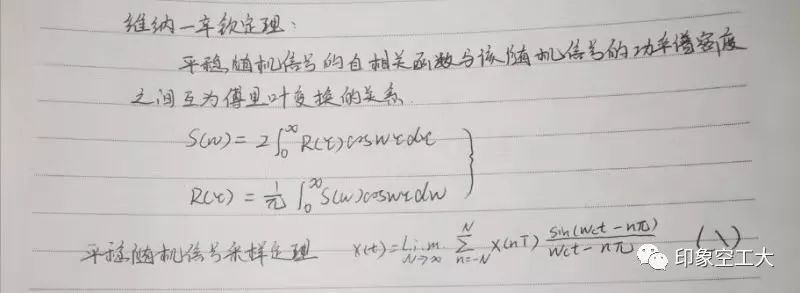 维纳—辛钦定理:
平稳随机信号的自相关函数与该随机信号的功率谱密度
之间互为傅里叶变换的关系.
S(w) = 2∫₀^∞ R(τ)coswτdτ
R(τ) = 1/π ∫₀^∞ S(w)coswτdw }
平稳随机信号采样定理 X(t) = L.i.m_{N→∞} Σ_{n=-N}^{N} X(nT) sin(wct - nπ)/wct - nπ (\)
印象空工大